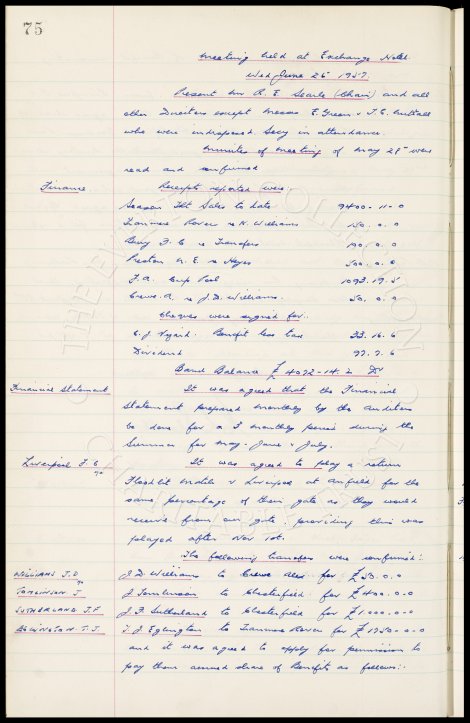 75
Meeting held at Exchange Hotel
Wed June 26 1957.
Present Mr R. E. Searle (Chair) and all
other Directors except Messrs E. Green & T. C. Nuttall
who were indisposed. Secy in attendance.
Minutes of meeting of May 28 were
read and confirmed
Finance. Receipts reported were:
Season Tkt Sales to date 9400-11-0
Tranmere Rovers re K. Williams 150.0.0
Bury F.C re Transfers 100.0.0
Preston N.E re Hayes 500.0.0
F.A. Cup Pool 1093.19.5
Crewe A. re J.D. Williams. 50.0.0
Cheques were signed for.
Benefit less tax 33.16.6
Dividend 97.7.6
Bank Balance £4072-14-2 Dr
Financial Statement It was agreed that the Financial
statement prepared monthly by the auditors
be done for a 3 monthly period during the
Summer for May - June & July.
Liverpool F.C It was agreed to play a return
Floodlit match v Liverpool at Anfield for the
same percentage of their gate as they would
receive from our gate providing this was
played after Nov 1st.
The following transfers were confirmed:
WILLIAMS J.D J.D. Williams to Crewe Alex for £50.0.0
TOMLINSON J J Tomlinson to Chesterfield for £400.0.0
SUTHERLAND J.F J.F Sutherland to Chesterfield for £1,000.0.0
EGLINGTON T.J. T.J Eglington to Tranmere Rovers for £1950-0-0
and it was agreed to apply for permission to
pay them accrued share of Benefits as follows:-